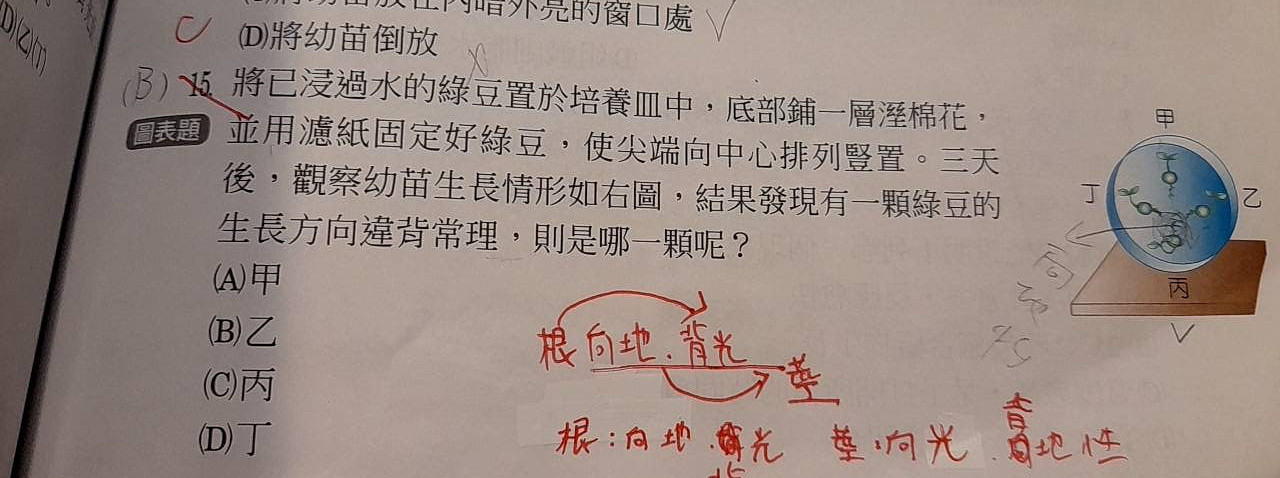 的窗口處
(D)將幼苗倒放
(B) 15. 將已浸過水的綠豆置於培養皿中，底部鋪一層溼棉花，
圖表題 並用濾紙固定好綠豆，使尖端向中心排列豎置。三天
後，觀察幼苗生長情形如右圖，結果發現有一顆綠豆的
生長方向違背常理，則是哪一顆呢？
(A)甲
(B)乙
(C)丙
(D)丁
甲
丁
乙
丙
向
根向地.背光
莖
根:向地.背光 莖:向光.背地性